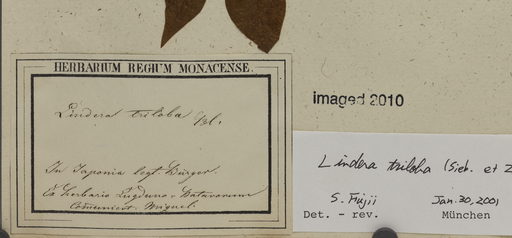 HERBARIUM REGIUM MONACENSE.
Lindera triloba Bl.
In Japonia legt. Bürger.
Ex herbario Lugduno-Batavorum
Communicat. Miquel.
imaged 2010
Lindera triloba (Sieb. et Z
S. Fujii Jan. 30, 2001
Det. - rev. München